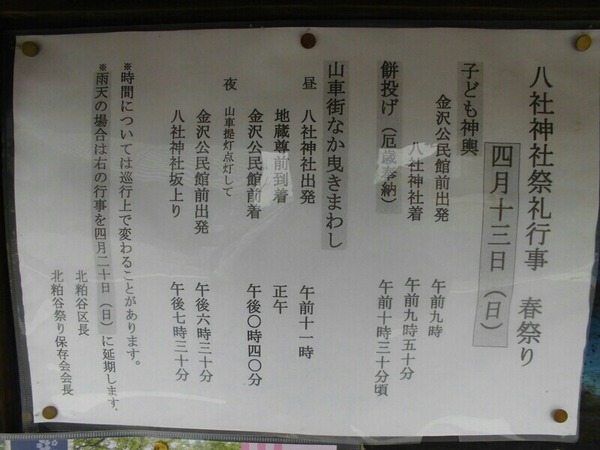 八社神社祭礼行事 春祭り
四月十三日（日）
子ども神輿
金沢公民館前出発 午前九時
八社神社着 午前九時五十分
餅投げ（厄歳奉納） 午前十時三十分頃
山車街なか曳きまわし
昼 八社神社出発 午前十一時
地蔵尊前到着 正午
金沢公民館前着 午後〇時四〇分
夜 山車提灯点灯して
金沢公民館前出発 午後六時三十分
八社神社坂上り 午後七時三十分
※時間については巡行上で変わることがあります。
※雨天の場合は右の行事を四月二十日（日）に延期します.
北粕谷区長
北粕谷祭り保存会会長